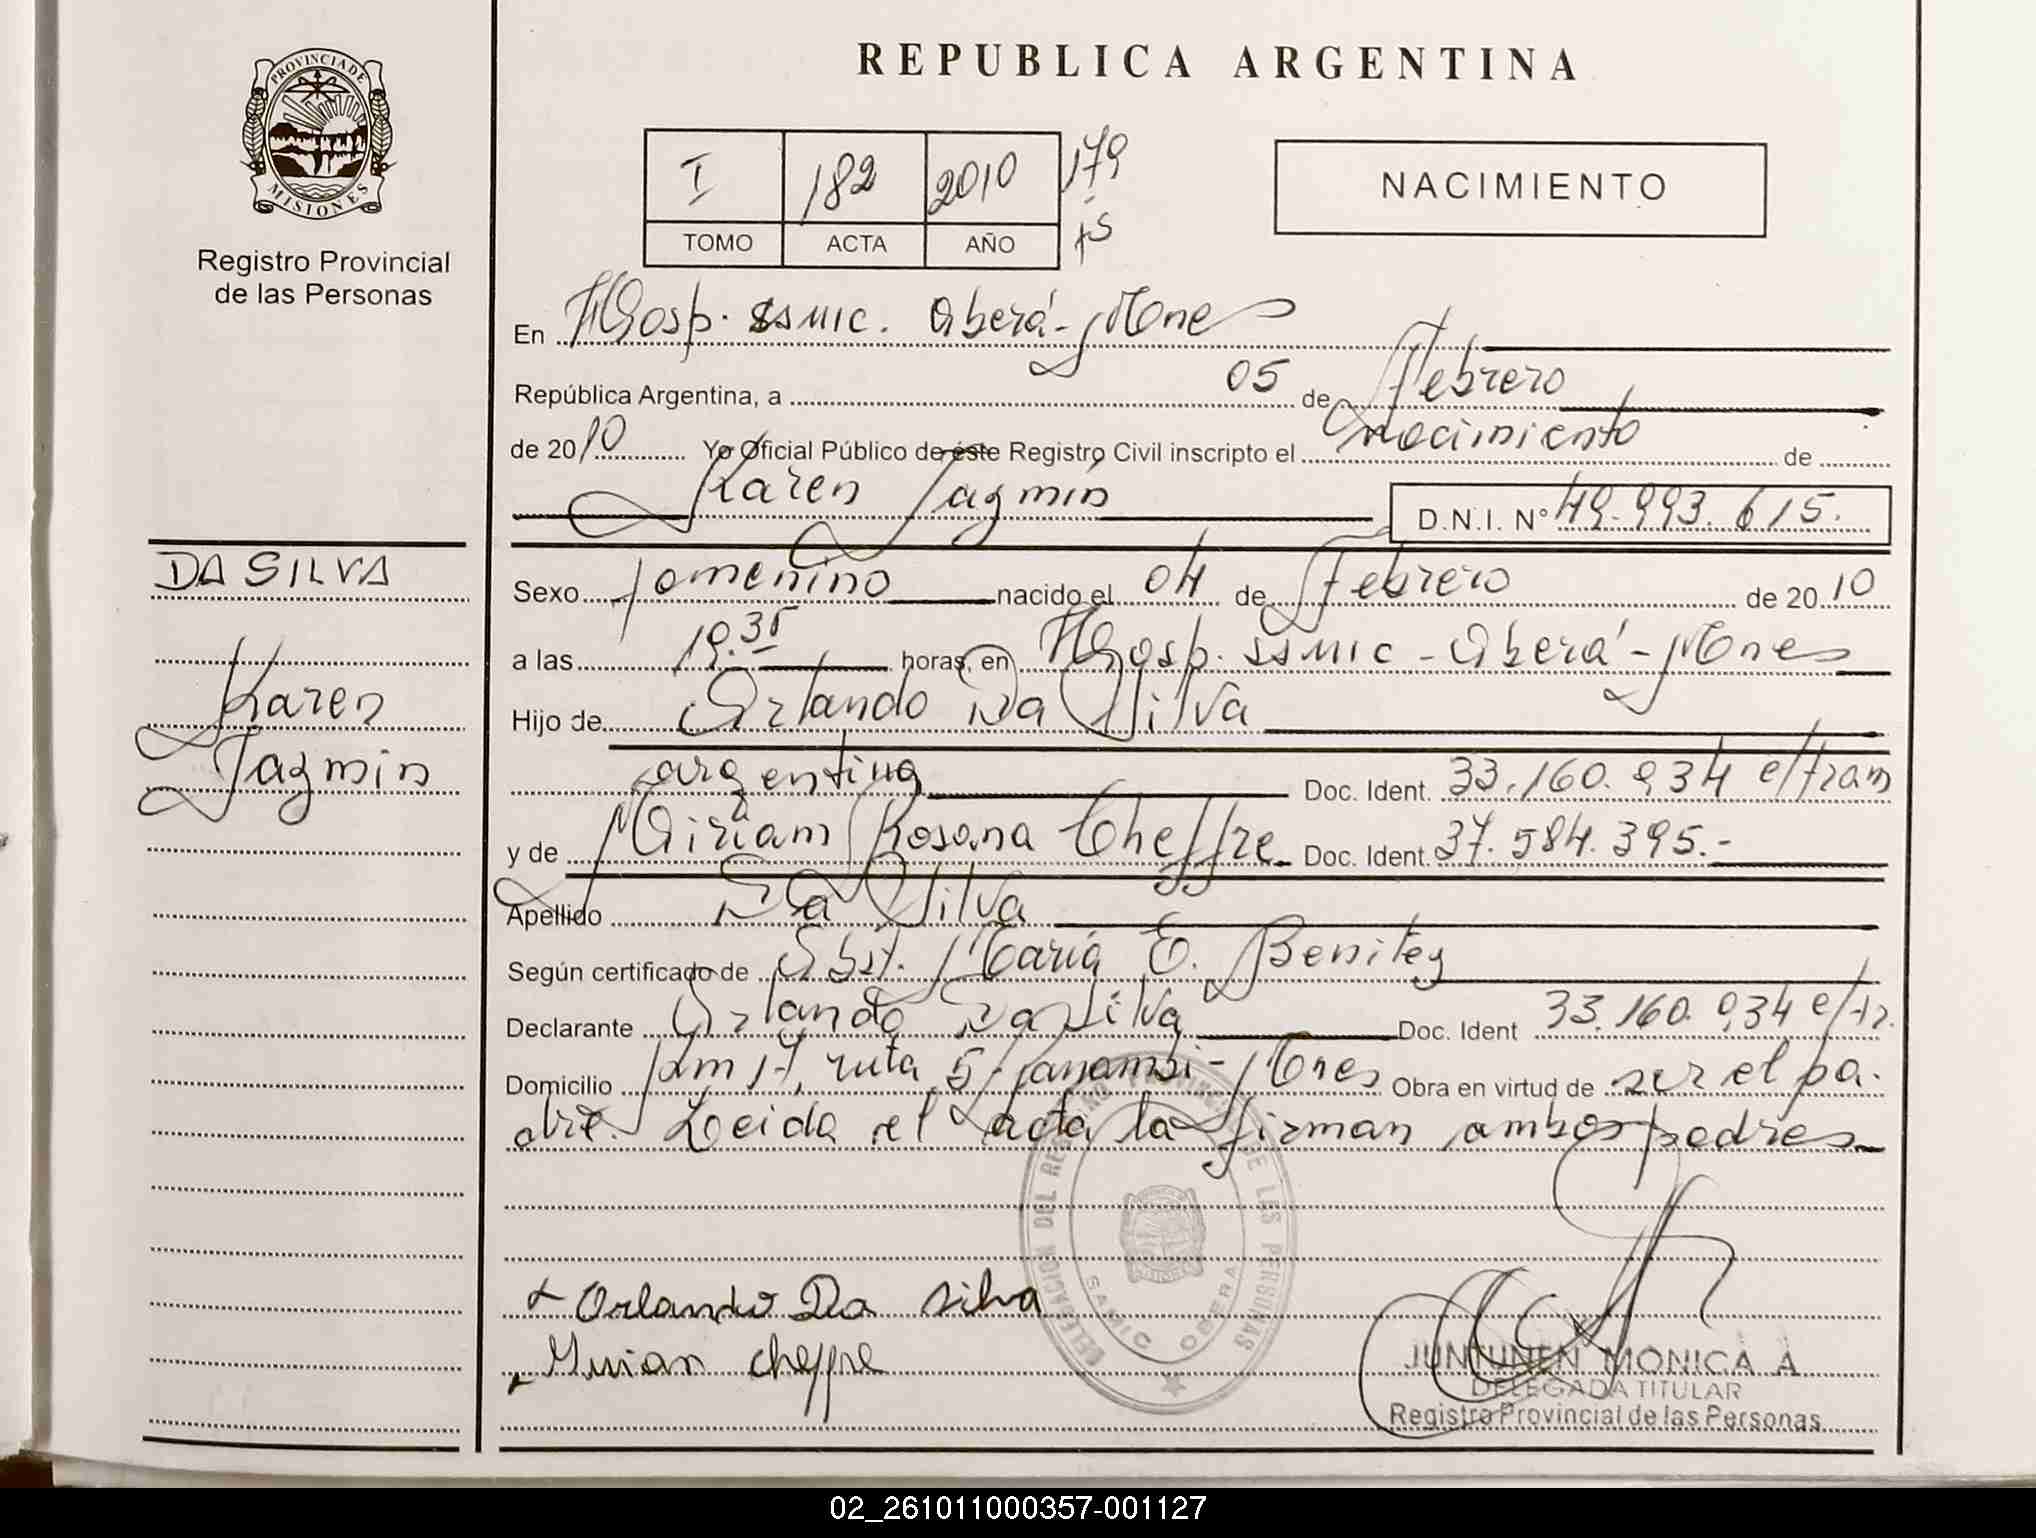 PROVINCIA DE MISIONES
Registro Provincial
de las Personas
REPUBLICA ARGENTINA
I 182 2010 179
TOMO ACTA AÑO
NACIMIENTO
En Hosp. SSMIC. Oberá - Mnes
República Argentina, a 05 de Febrero
de 2010 Yo Oficial Público de éste Registro Civil inscripto el nacimiento de
Karen Jazmin D.N.I. N° 49.993.615.
DA SILVA
Karen
Jazmin
Sexo femenino nacido el 04 de Febrero de 2010
a las 19.35 horas, en Hosp. SSMIC - Oberá - Mnes
Hijo de Orlando Da Silva
argentina Doc. Ident. 33.160.934 e/tram
y de Miriam Rosana Cheffre Doc. Ident. 37.584.395.-
Apellido Da Silva
Según certificado de Obst. María E. Benitez
Declarante Orlando Da Silva Doc. Ident 33.160.934 e/tr.
Domicilio km 17, ruta 5 - Panambi - Mnes Obra en virtud de ser el pa-
dre. Leida el acta la firman ambos padres
Orlando Da Silva
Mirian cheffre
DELEGACION DEL REGISTRO PROVINCIAL DE LAS PERSONAS
SAMIC OBERA
JUNTUNEN MONICA A
DELEGADA TITULAR
Registro Provincial de las Personas
02_261011000357-001127